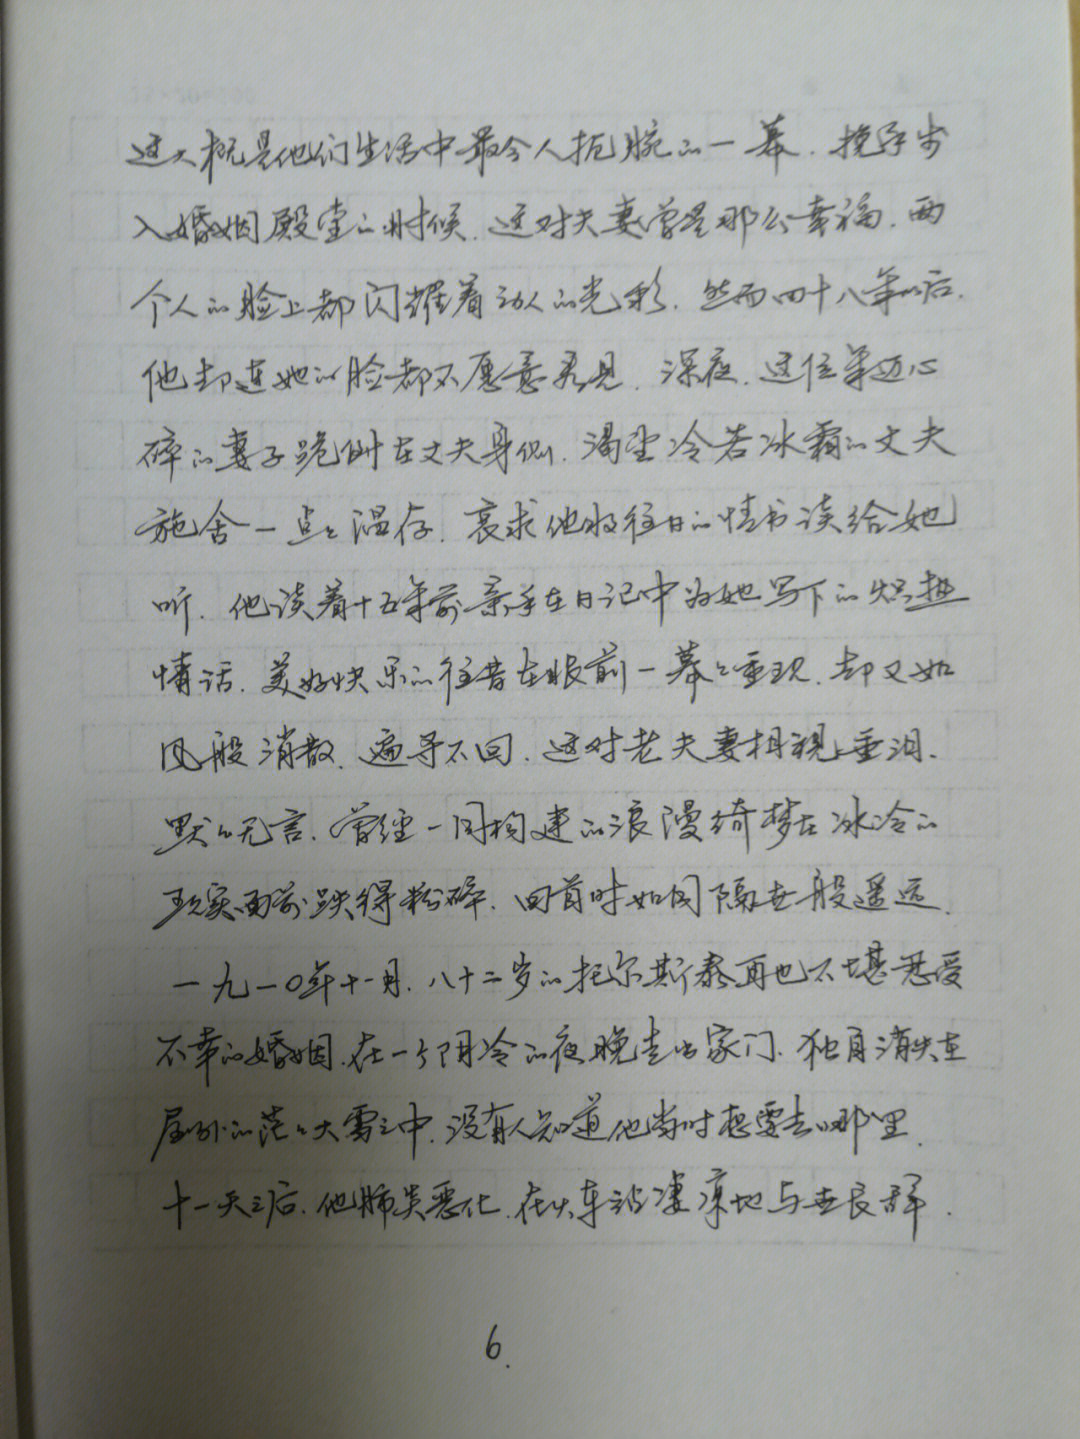 这大概是他们生活中最令人扼腕的一幕.挽手步
入婚姻殿堂的时候.这对夫妻曾是那么幸福.两
个人的脸上都闪耀着动人的光彩.然而四十八年以后.
他却连她的脸都不愿意看见.深夜.这位年迈心
碎的妻子跪倒在丈夫身侧.渴望冷若冰霜的丈夫
施舍一点々温存.哀求他将往日的情书读给她
听.他读着十五年前亲手在日记中为她写下的炽热
情话.美好快乐的往昔在眼前一幕々重现.却又如
风般消散.遍寻不回.这对老夫妻相视垂泪.
默々无言.曾经一同构建的浪漫绮梦在冰冷的
现实面前跌得粉碎.回首时如同隔世般遥远.
一九一〇年十一月.八十二岁的托尔斯泰再也不堪忍受
不幸的婚姻.在一个阴冷的夜晚走出家门.独自消失在
屋外的茫々大雪之中.没有人知道他当时想要去哪里.
十一天之后.他肺炎恶化.在火车站凄凉地与世长辞.
6.